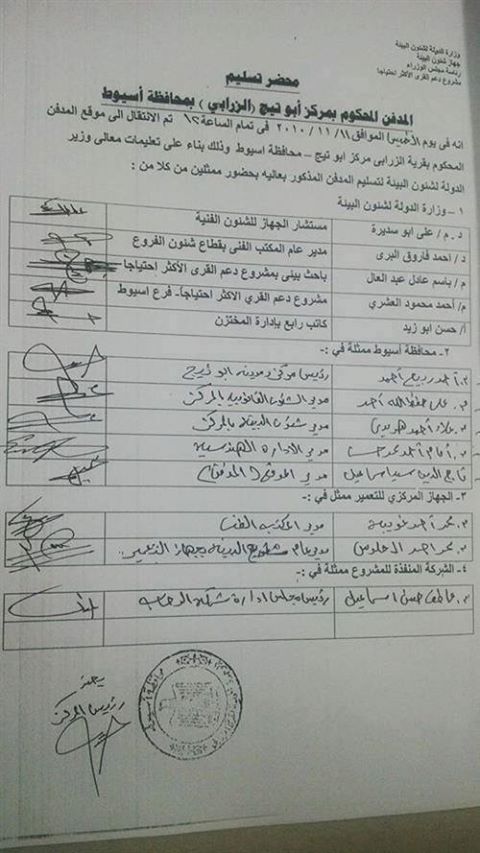 وزارة الدولة لشئون البيئة
جهاز شئون البيئة
رئاسة مجلس الوزراء
مشروع دعم القرى الأكثر احتياجا
محضر تسليم
المدفن المحكوم بمركز أبو تيج (الزرابي) بمحافظة أسيوط
انه فى يوم الموافق ٢٠١٠/١١/١١ فى تمام الساعة ١٢ تم الانتقال الى موقع المدفن
المحكوم بقرية الزرابى مركز ابو تيج – محافظة اسيوط وذلك بناء على تعليمات معالى وزير
الدولة لشئون البيئة لتسليم المدفن المذكور بعاليه بحضور ممثلين من كلا من :
١ – وزارة الدولة لشئون البيئة
د . م / على ابو سديرة مستشار الجهاز للشئون الفنية
د / احمد فاروق البرى مدير عام المكتب الفنى بقطاع شئون الفروع
م / باسم عادل عبد العال باحث بيئى بمشروع دعم القرى الأكثر احتياجا
م/ أحمد محمود العشري مشروع دعم القري الاكثر احتياجاً- فرع اسيوط
أ/ حسن ابو زيد كاتب رابع بإدارة المختزن
٢- محافظة أسيوط ممثلة في :-
أحمد ربيع أحمد رئيس مركز ومدينة ابو تيج
على حفظ الله أحمد مدير الشئون القانونية بالمركز
علاء أحمد مدير شئون البيئة بالمركز
مدير الادارة الهندسية
تاج الدين سيد اسماعيل مدير
٣- الجهاز المركزي للتعمير ممثل في :-
محمد أحمد مدير المكتب الفنى
محمد احمد مدير عام البيئة بجهاز التعمير
٤- الشركة المنفذة للمشروع ممثلة في :-
عاطف حسن اسماعيل رئيس مجلس ادارة شركة الرحاب
يعتمد
رئيس المركز